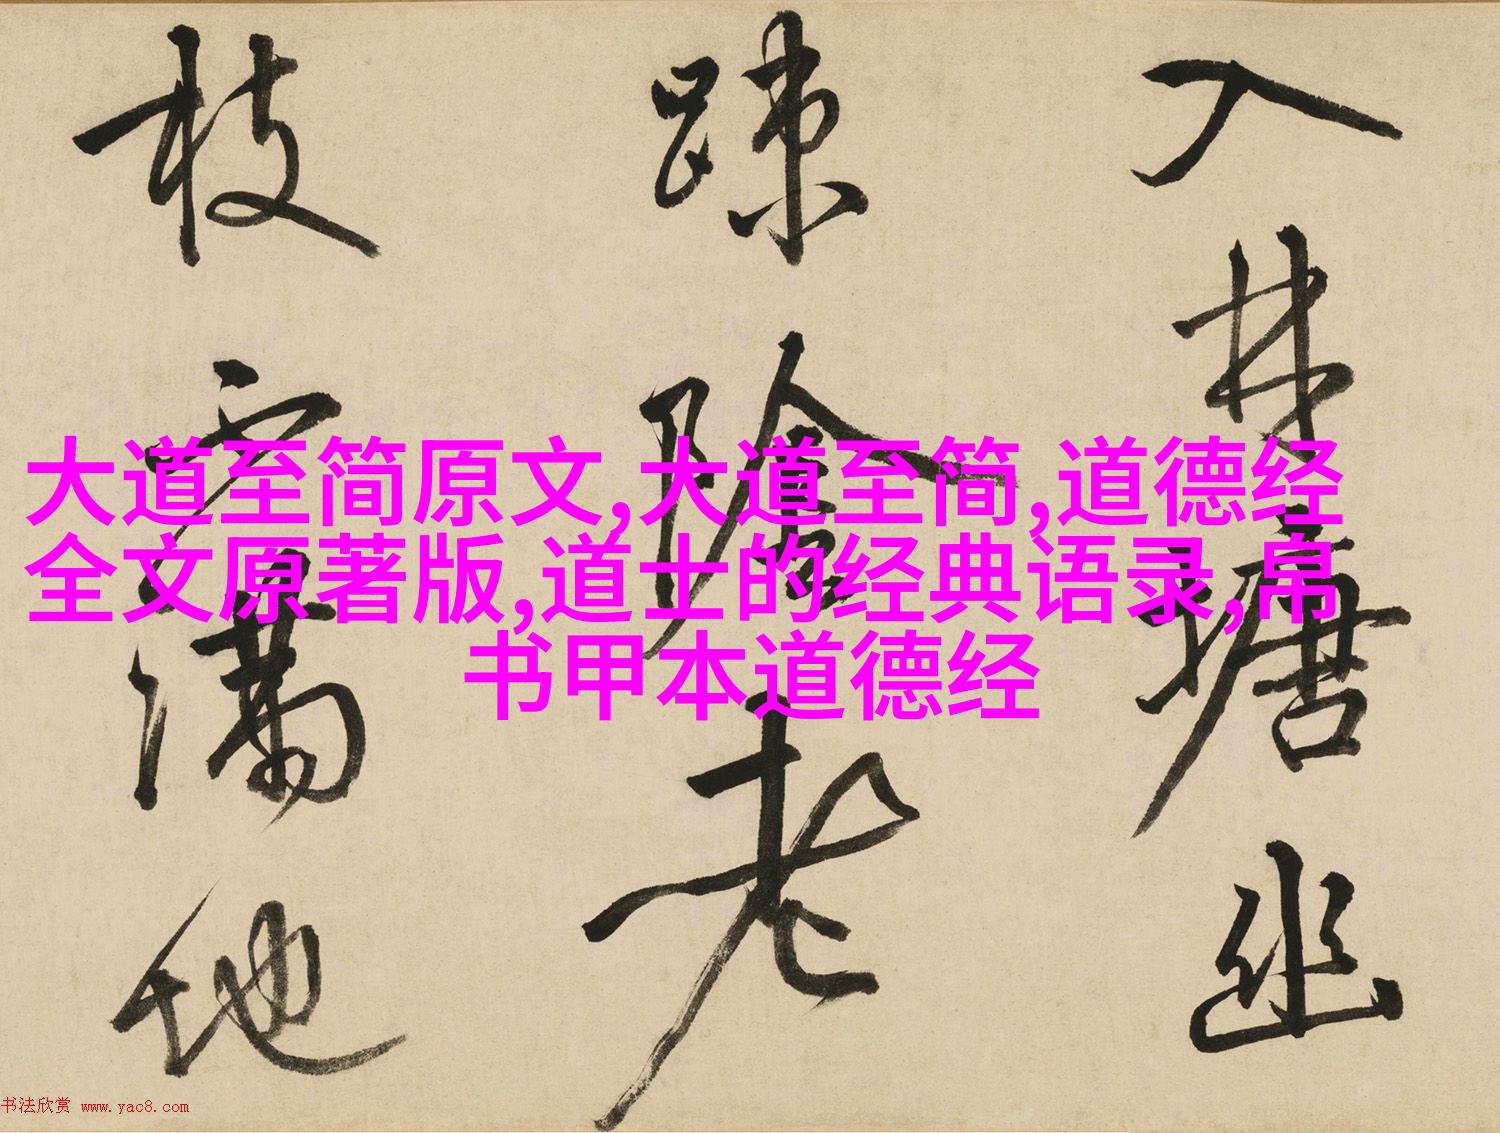 入林塘幽
踈陰老
枝滿地
大道至简原文,大道至简,道德经
全文原著版,道士的经典语录,帛
书甲本道德经
书法欣赏 www.yac8.com